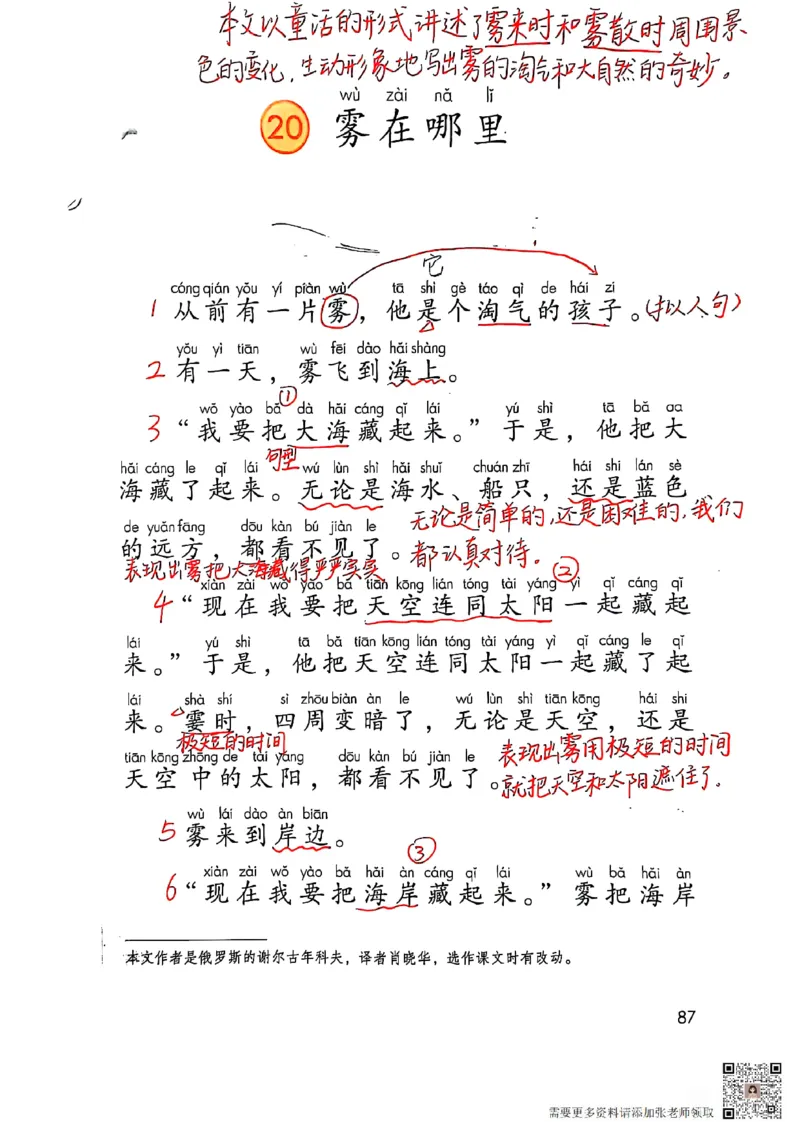 本文以童话的形式讲述了雾来时和雾散时周围景
色的变化,生动形象地写出雾的淘气和大自然的奇妙。
wù zài nǎ lǐ
20 雾在哪里
它
cóng qián yǒu yí piàn wù tā shì gè táo qì de hái zi
1 从前有一片雾，他是个淘气的孩子。(拟人句)
yǒu yì tiān wù fēi dào hǎi shàng
2 有一天，雾飞到海上。
①
wǒ yào bǎ dà hǎi cáng qǐ lái yú shì tā bǎ dà
3 “我要把大海藏起来。”于是，他把大
句型
hǎi cáng le qǐ lái wú lùn shì hǎi shuǐ chuán zhī hái shi lán sè
海藏了起来。无论是海水、船只，还是蓝色
无论是简单的,还是困难的,我们
de yuǎn fāng dōu kàn bú jiàn le
的远方，都看不见了。都认真对待。
表现出雾把大海藏得严严实实
②
xiàn zài wǒ yào bǎ tiān kōng lián tóng tài yáng yì qǐ cáng qǐ
4 “现在我要把天空连同太阳一起藏起
lái yú shì tā bǎ tiān kōng lián tóng tài yáng yì qǐ cáng le qǐ
来。”于是，他把天空连同太阳一起藏了起
lái shà shí sì zhōu biàn àn le wú lùn shì tiān kōng hái shi
来。霎时，四周变暗了，无论是天空，还是
极短的时间
表现出雾用极短的时间
tiān kōng zhōng de tài yáng dōu kàn bú jiàn le
天空中的太阳，都看不见了。就把天空和太阳遮住了.
wù lái dào àn biān
5 雾来到岸边。
③
xiàn zài wǒ yào bǎ hǎi àn cáng qǐ lái wù bǎ hǎi àn
6 “现在我要把海岸藏起来。”雾把海岸
本文作者是俄罗斯的谢尔古年科夫，译者肖晓华，选作课文时有改动。
87
需要更多资料请添加张老师领取